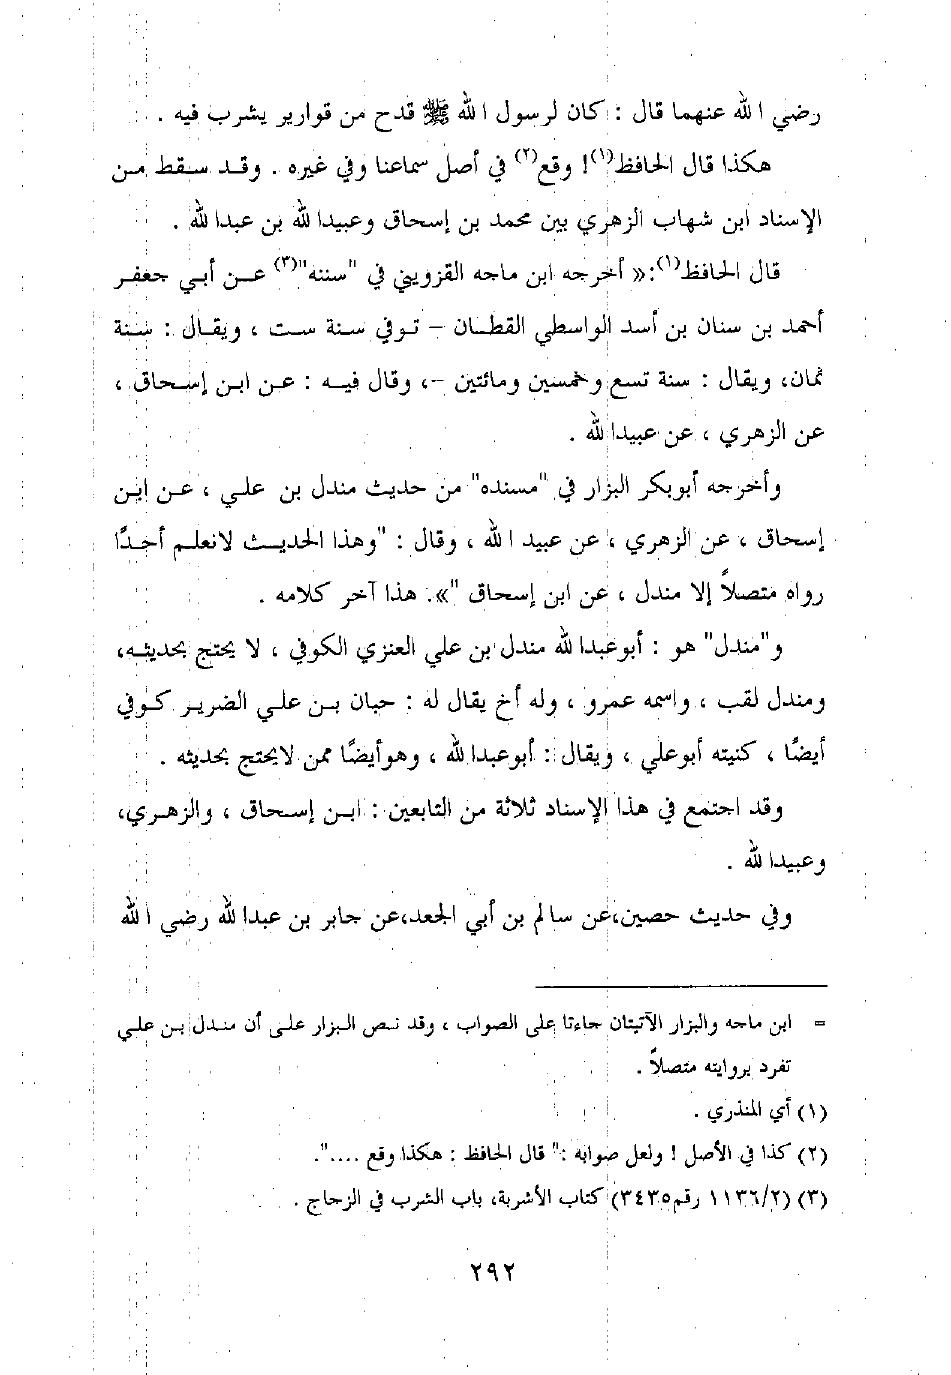 رضي الله عنهما قال : كان لرسول الله ﷺ قدح من قوارير يشرب فيه .
هكذا قال الحافظ(١)! وقع(٢) في أصل سماعنا وفي غيره . وقد سقط من
الإسناد ابن شهاب الزهري بين محمد بن إسحاق وعبيدالله بن عبدالله .
قال الحافظ(١):« أخرجه ابن ماجه القزويني في "سننه"(٣) عن أبي جعفر
أحمد بن سنان بن أسد الواسطي القطان – توفي سنة ست ، ويقال : سنة
ثمان، ويقال : سنة تسع وخمسين ومائتين –، وقال فيه : عن ابن إسحاق ،
عن الزهري ، عن عبيدالله .
وأخرجه أبوبكر البزار في "مسنده" من حديث مندل بن علي ، عن ابن
إسحاق ، عن الزهري ، عن عبيد الله ، وقال : "وهذا الحديث لانعلم أحدًا
رواه متصلاً إلا مندل ، عن ابن إسحاق "». هذا آخر كلامه .
و"مندل" هو : أبوعبدالله مندل بن علي العنزي الكوفي ، لا يحتج بحديثه،
ومندل لقب ، واسمه عمرو ، وله أخ يقال له : حبان بن علي الضرير كوفي
أيضًا ، كنيته أبوعلي ، ويقال : أبوعبدالله ، وهوأيضًا ممن لايحتج بحديثه .
وقد اجتمع في هذا الإسناد ثلاثة من التابعين : ابن إسحاق ، والزهري،
وعبيدالله .
وفي حديث حصين،عن سالم بن أبي الجعد،عن جابر بن عبدالله رضي الله
= ابن ماجه والبزار الآتيتان جاءتا على الصواب ، وقد نص البزار على أن مندل بن علي
تفرد بروايته متصلاً .
(١) أي المنذري .
(٢) كذا في الأصل ! ولعل صوابه :" قال الحافظ : هكذا وقع ....".
(٣) (١١٣٦/٢ رقم٣٤٣٥) كتاب الأشربة، باب الشرب في الزجاج .
٢٩٢